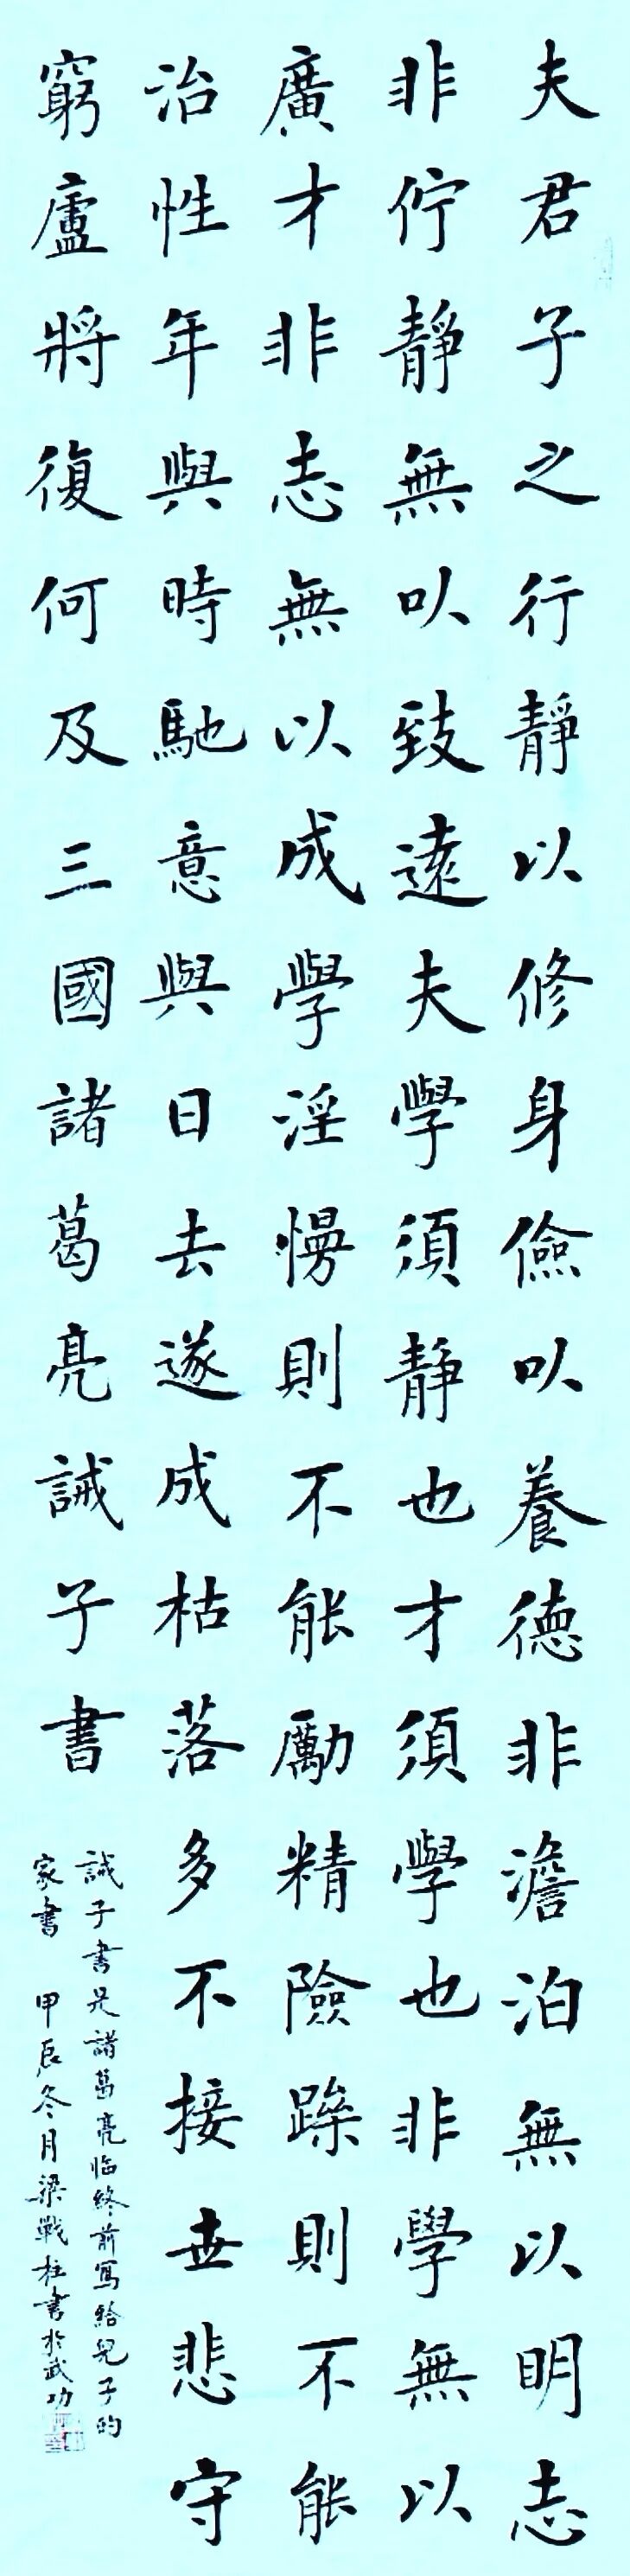 夫君子之行靜以修身儉以養德非澹泊無以明志
非佇靜無以致遠夫學須静也才須學也非學無以
廣才非志無以成學淫慢則不能勵精險躁則不能
治性年與時馳意與日去遂成枯落多不接世悲守
窮廬將復何及三國諸葛亮誡子書
誡子書是諸葛亮临終前寫給兒子的
家書 甲辰冬月梁戰柱書於武功